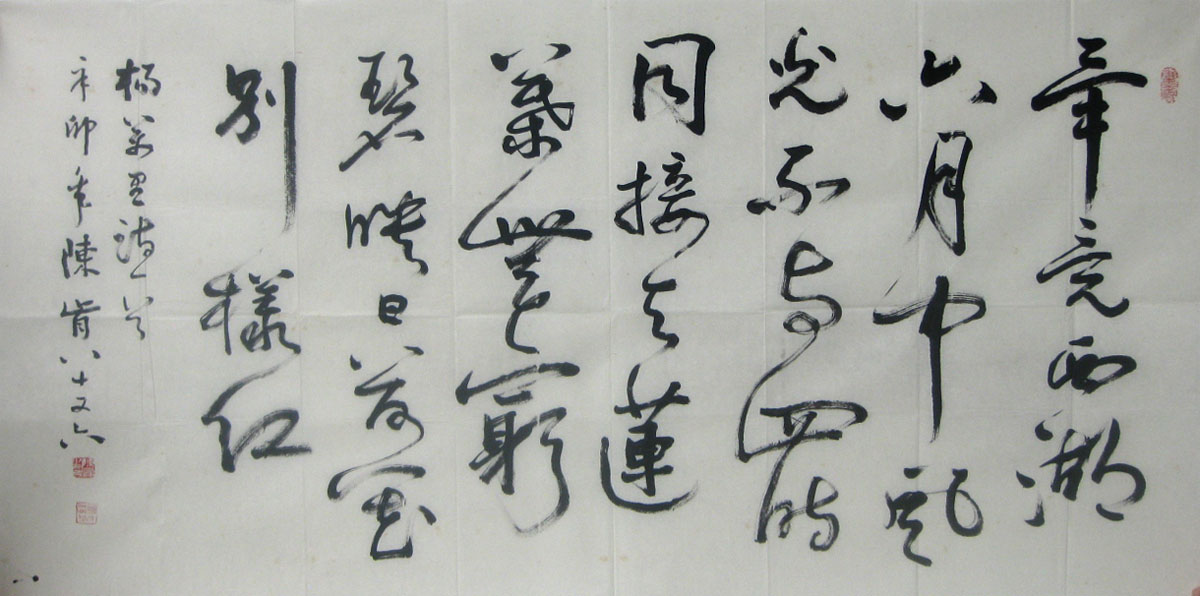 畢竟西湖
六月中風
光不與四時
同接天蓮
葉無窮
碧映日荷花
別樣紅
楊萬里詩一首
辛卯年陳肯八十又六